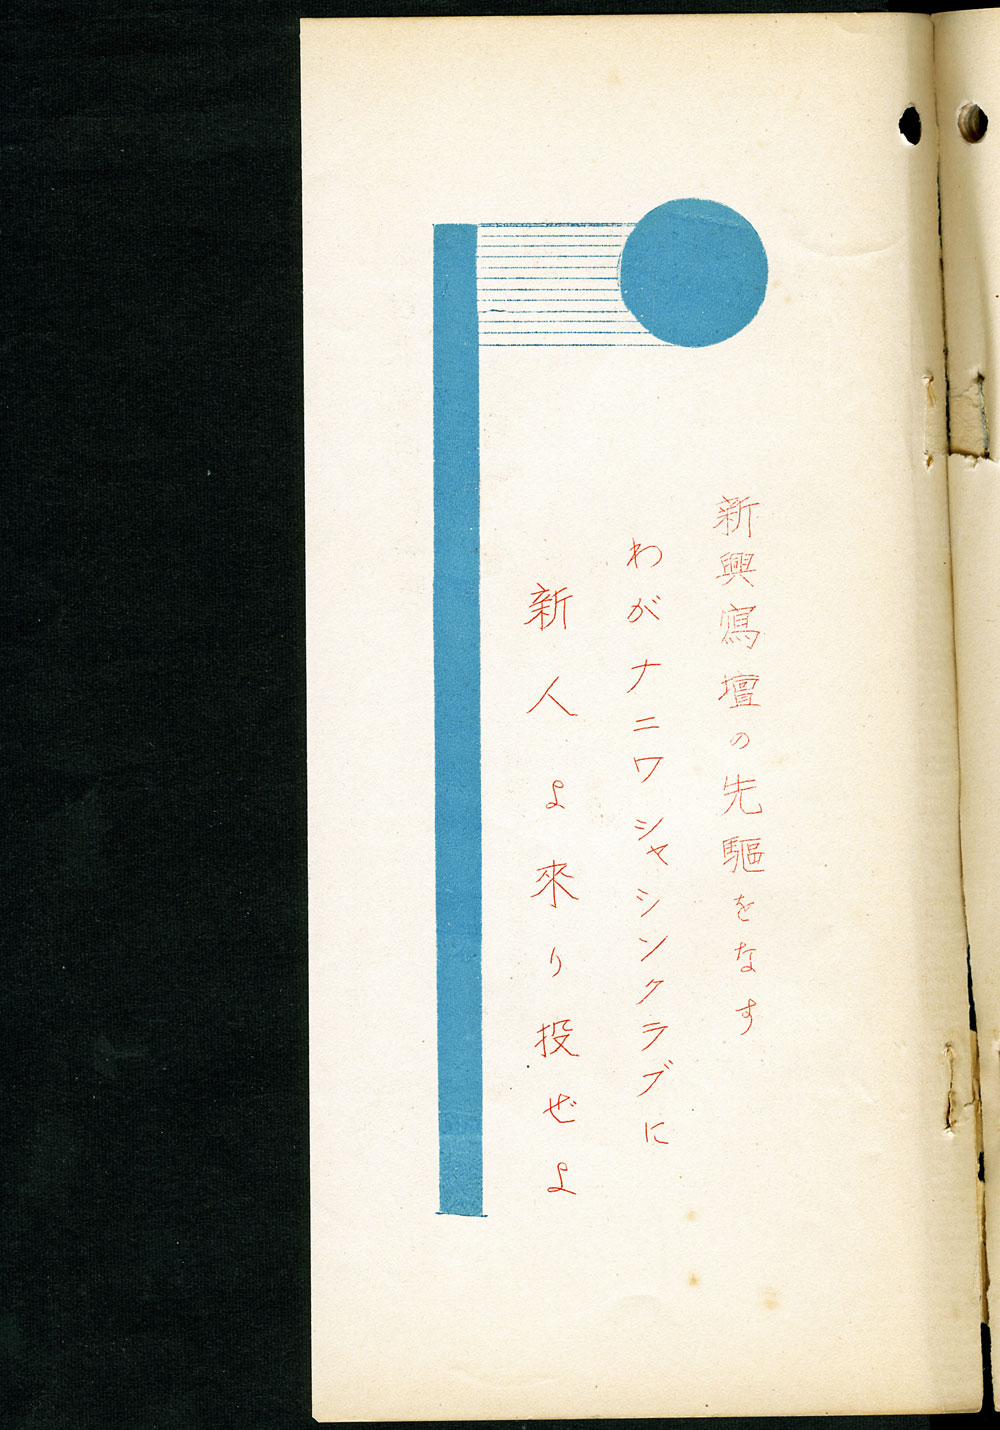 新興寫壇の先驅をなす
わがナニワシャシンクラブに
新人よ來り投ぜよ